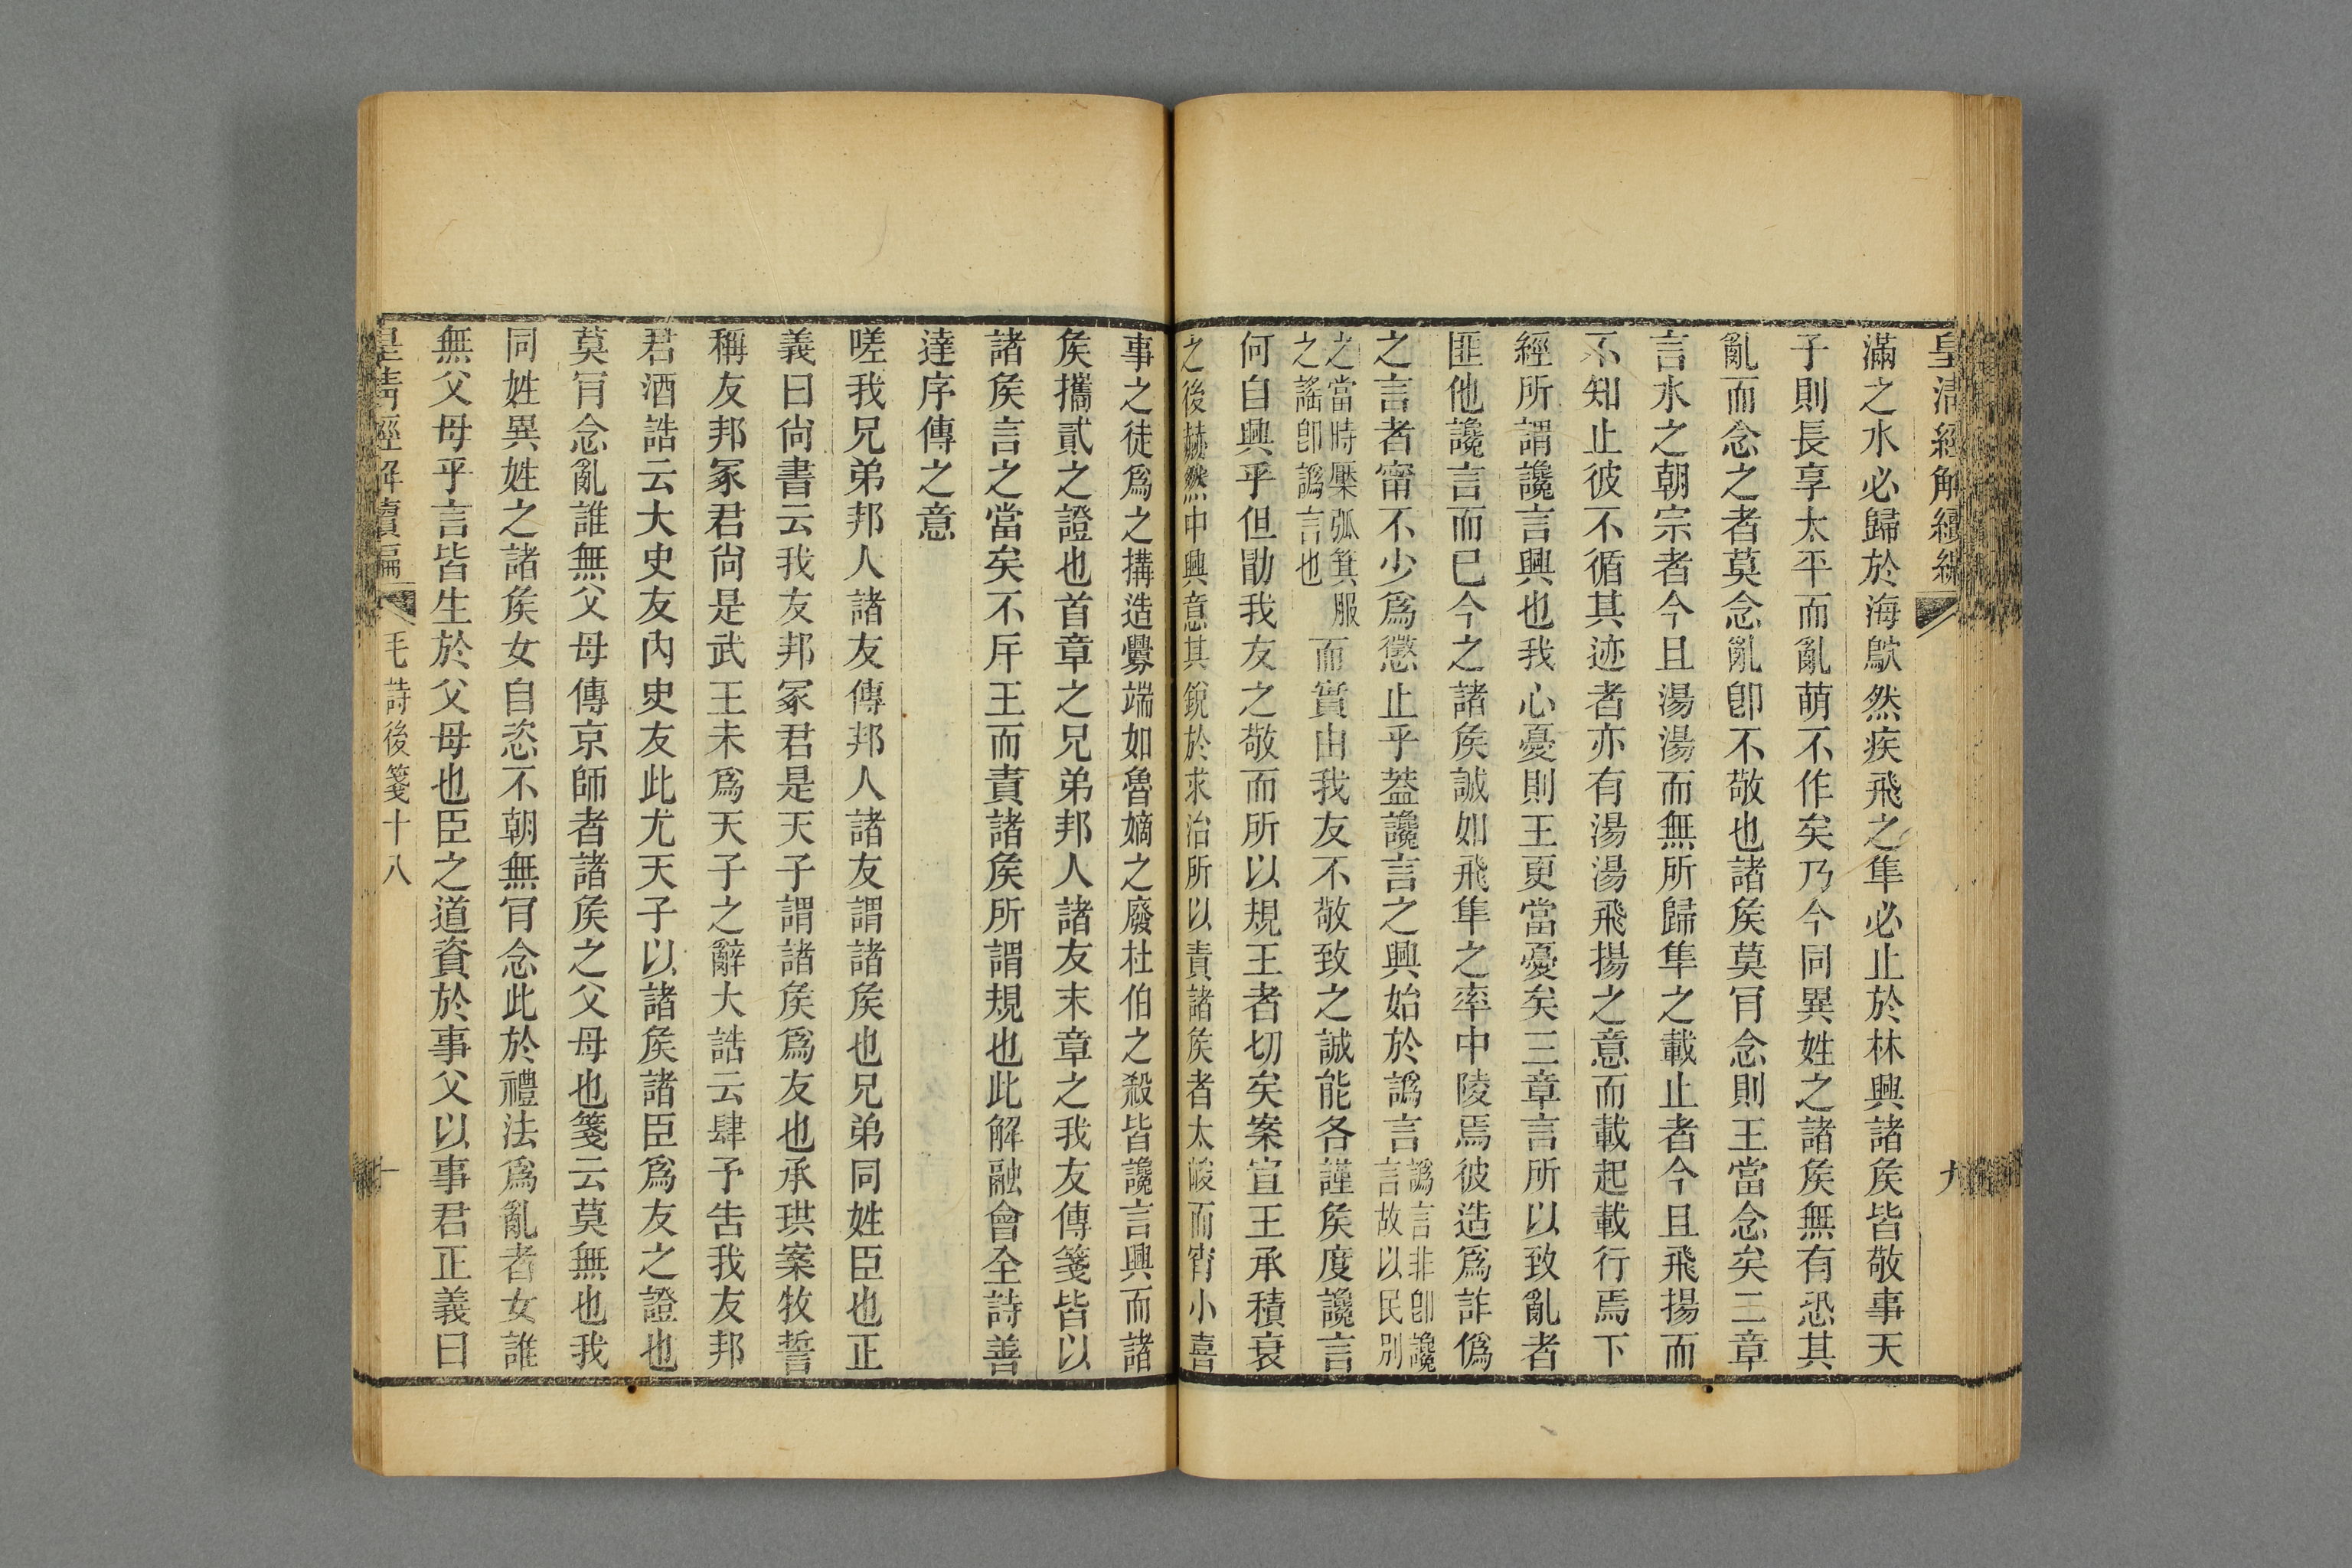 皇清經解續編
九
滿之水必歸於海鴥然疾飛之隼必止於林興諸矦皆敬事天
子則長享太平而亂萌不作矣乃今同異姓之諸矦無有恐其
亂而念之者莫念亂卽不敬也諸矦莫肎念則王當念矣二章
言水之朝宗者今且湯湯而無所歸隼之載止者今且飛揚而
不知止彼不循其迹者亦有湯湯飛揚之意而載起載行焉下
經所謂讒言興也我心憂則王更當憂矣三章言所以致亂者
匪他讒言而巳今之諸矦誠如飛隼之率中陵焉彼造爲詐僞
之言者甯不少爲懲止乎葢讒言之興始於譌言譌言非卽讒言故以民別
之當時壓弧箕服之謠卽譌言也而實由我友不敬致之誠能各謹矦度讒言
何自興乎但勖我友之敬而所以規王者切矣案宣王承積衰
之後赫然中興意其銳於求治所以責諸矦者太峻而宵小喜
事之徒爲之搆造釁端如魯嫡之廢杜伯之殺皆讒言興而諸
矦攜貳之證也首章之兄弟邦人諸友末章之我友傳箋皆以
諸矦言之當矣不斥王而責諸矦所謂規也此解融會全詩善
達序傳之意
嗟我兄弟邦人諸友傳邦人諸友謂諸矦也兄弟同姓臣也正
義曰尙書云我友邦冢君是天子謂諸矦爲友也承珙案牧誓
稱友邦冢君尙是武王未爲天子之辭大誥云肆予告我友邦
君酒誥云大史友內史友此尤天子以諸矦諸臣爲友之證也
莫肎念亂誰無父母傳京師者諸矦之父母也箋云莫無也我
同姓異姓之諸矦女自恣不朝無肎念此於禮法爲亂者女誰
無父母乎言皆生於父母也臣之道資於事父以事君正義曰
皇清經解續編
毛詩後箋十八
十